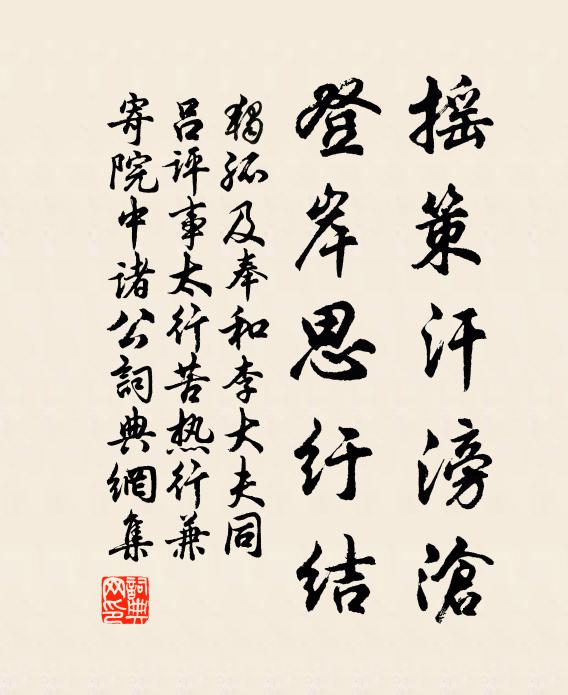 摇策汗滂滄
登岸思纡结
独孤及奉和李大夫同
吕评事太行苦热行兼
寄院中诸公詞典網集
詞典網印